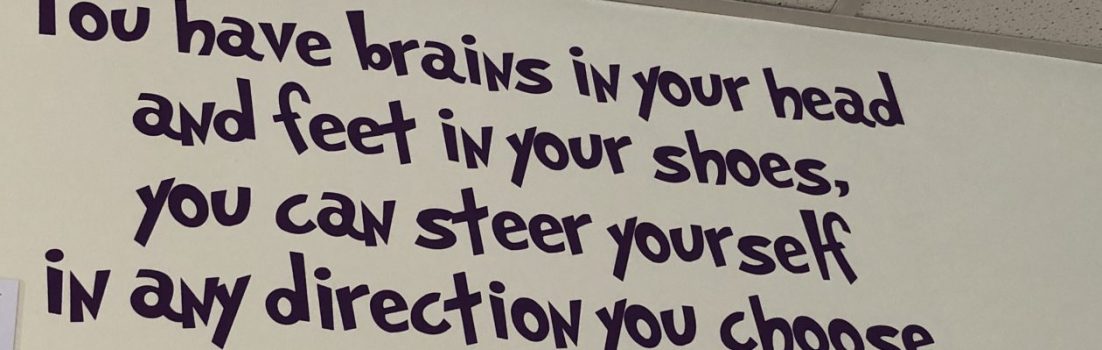 You have brains in your head
and feet in your shoes,
you can steer yourself
in any direction you choose